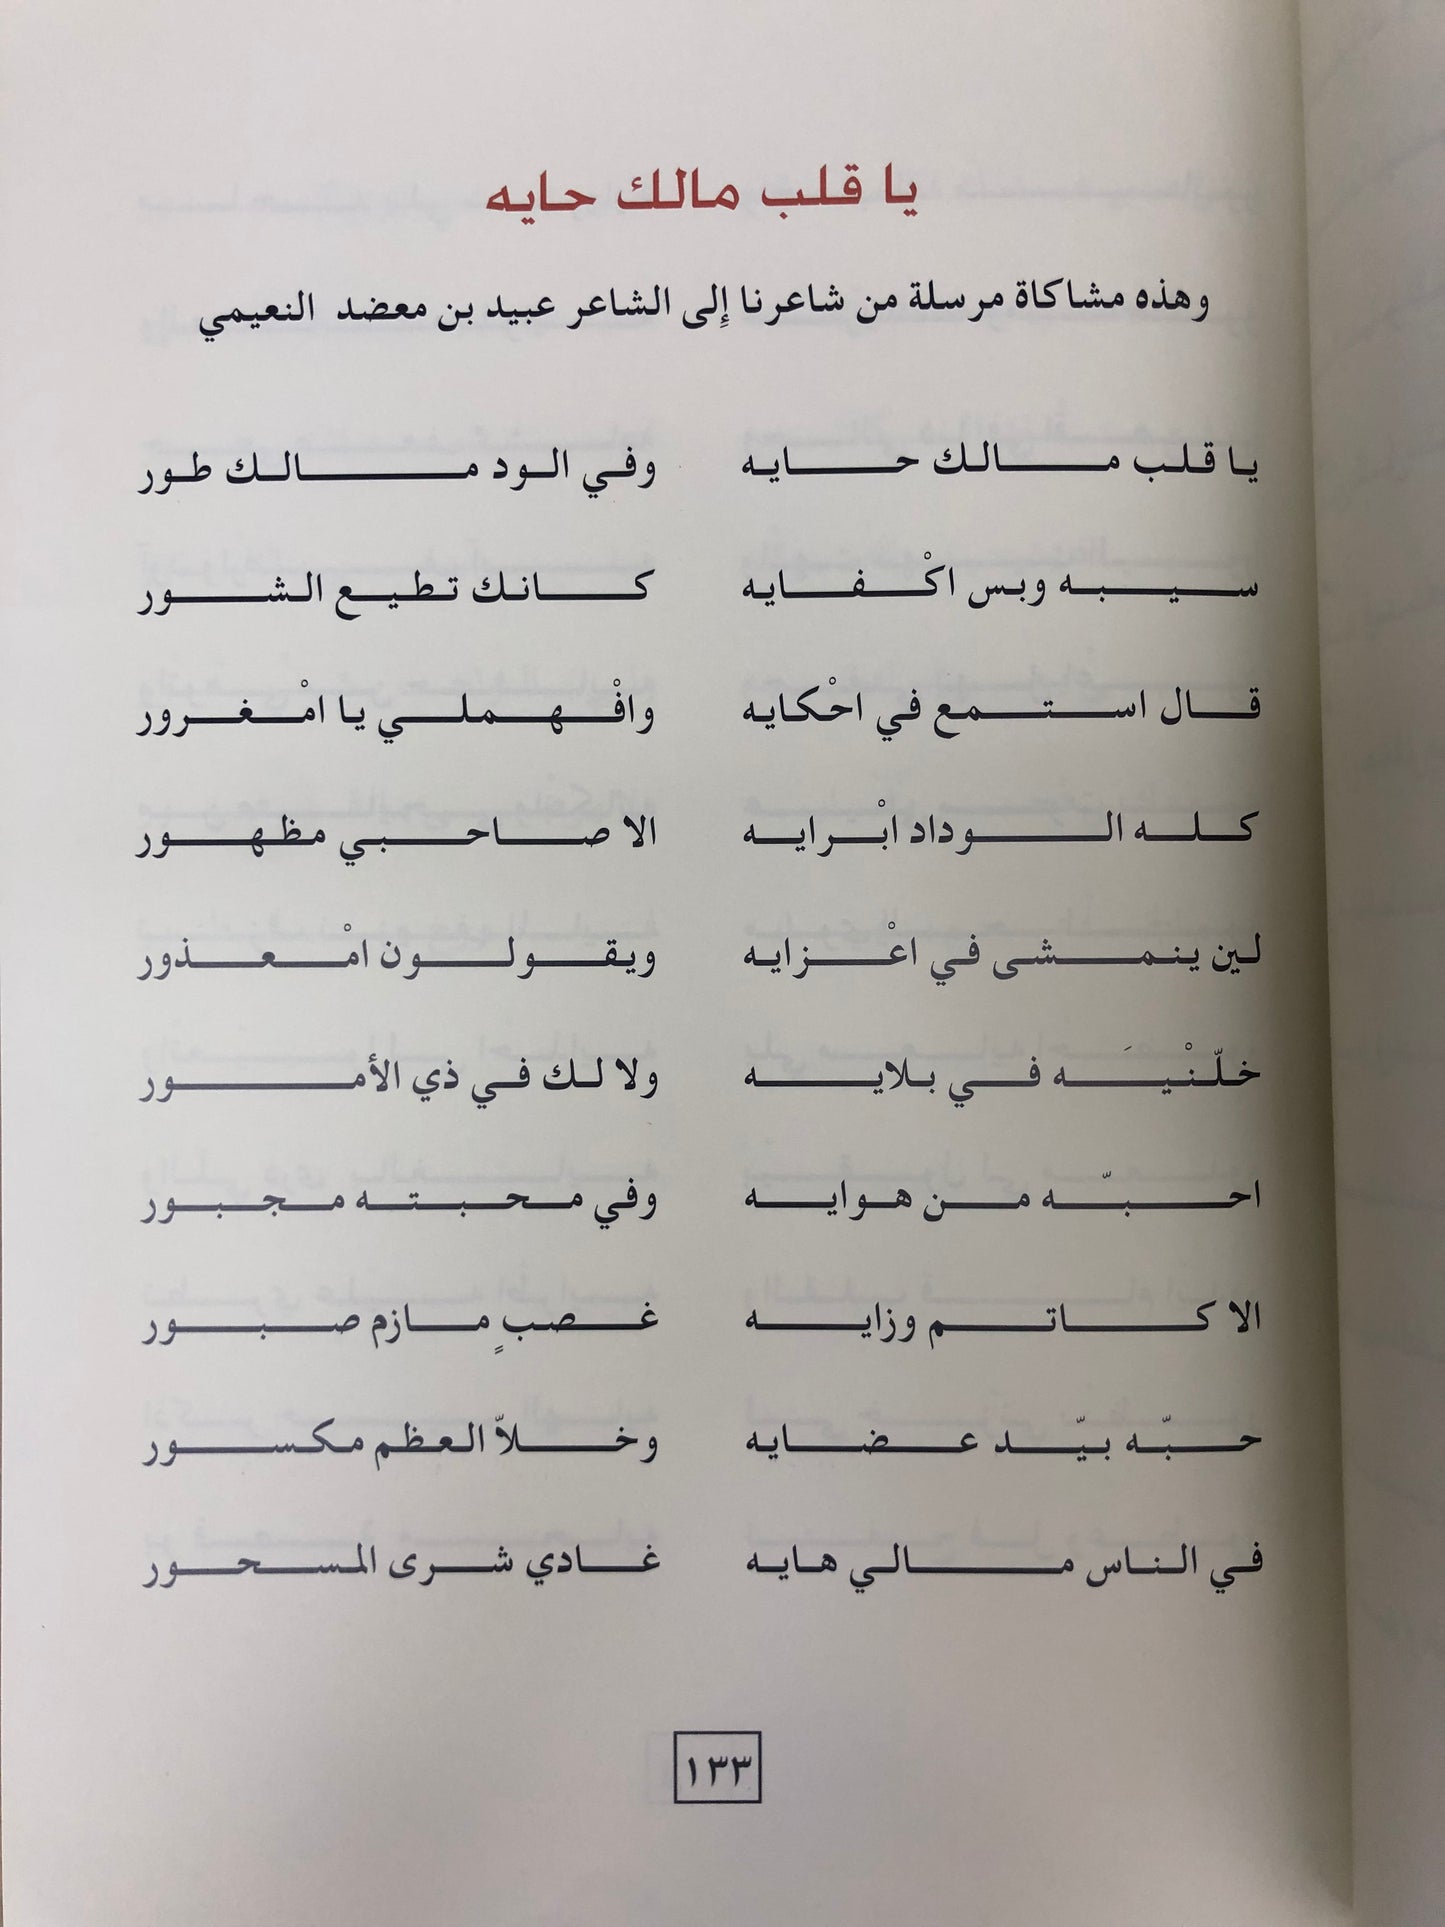 يا قلب مالك حايه
وهذه مشاكاة مرسلة من شاعرنا إِلى الشاعر عبيد بن معضد النعيمي
يا قلب مالك حايه وفي الود مالك طور
سيبه وبس اكْفايه كانك تطيع الشور
قال استمع في احْكايه وافْهملي يا امْغرور
كله الوداد ابْرايه الا صاحبي مظهور
لين ينمشى في اعْزايه ويقولون امْعذور
خلّنْيَه في بلايه ولا لك في ذي الأمور
احبّه من هوايه وفي محبته مجبور
الا كاتم وزايه غصبٍ مازم صبور
حبّه بيّد عضايه وخلاّ العظم مكسور
في الناس مالي هايه غادي شرى المسحور
١٣٣